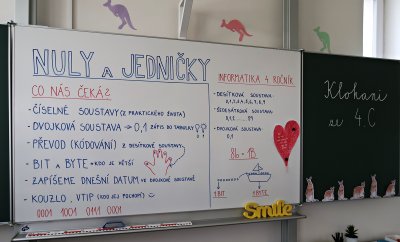 NULY A JEDNIČKY
CO NÁS ČEKÁ?
- ČÍSELNÉ SOUSTAVY (Z PRAKTICKÉHO ŽIVOTA)
- DVOJKOVÁ SOUSTAVA → 0,1 ZÁPIS DO TABULKY
- PŘEVOD (KÓDOVÁNÍ) Z DESÍTKOVÉ SOUSTAVY
- BIT A BYTE - KDO JE VĚTŠÍ
- ZAPÍŠEME DNEŠNÍ DATUM VE DVOJKOVÉ SOUSTAVĚ
- KOUZLO, VTIP (KDO JEJ POCHOPÍ)
0001 1001 0111 0001
INFORMATIKA 4 ROČNÍK
- DESÍTKOVÁ SOUSTAVA:
- ŠEDESÁTKOVÁ SOUSTAVA:
- DVOJKOVÁ SOUSTAVA:
0,1
8b = 1B
1 BIT
1 BYTE
Smile
Klokani
ze 4.C